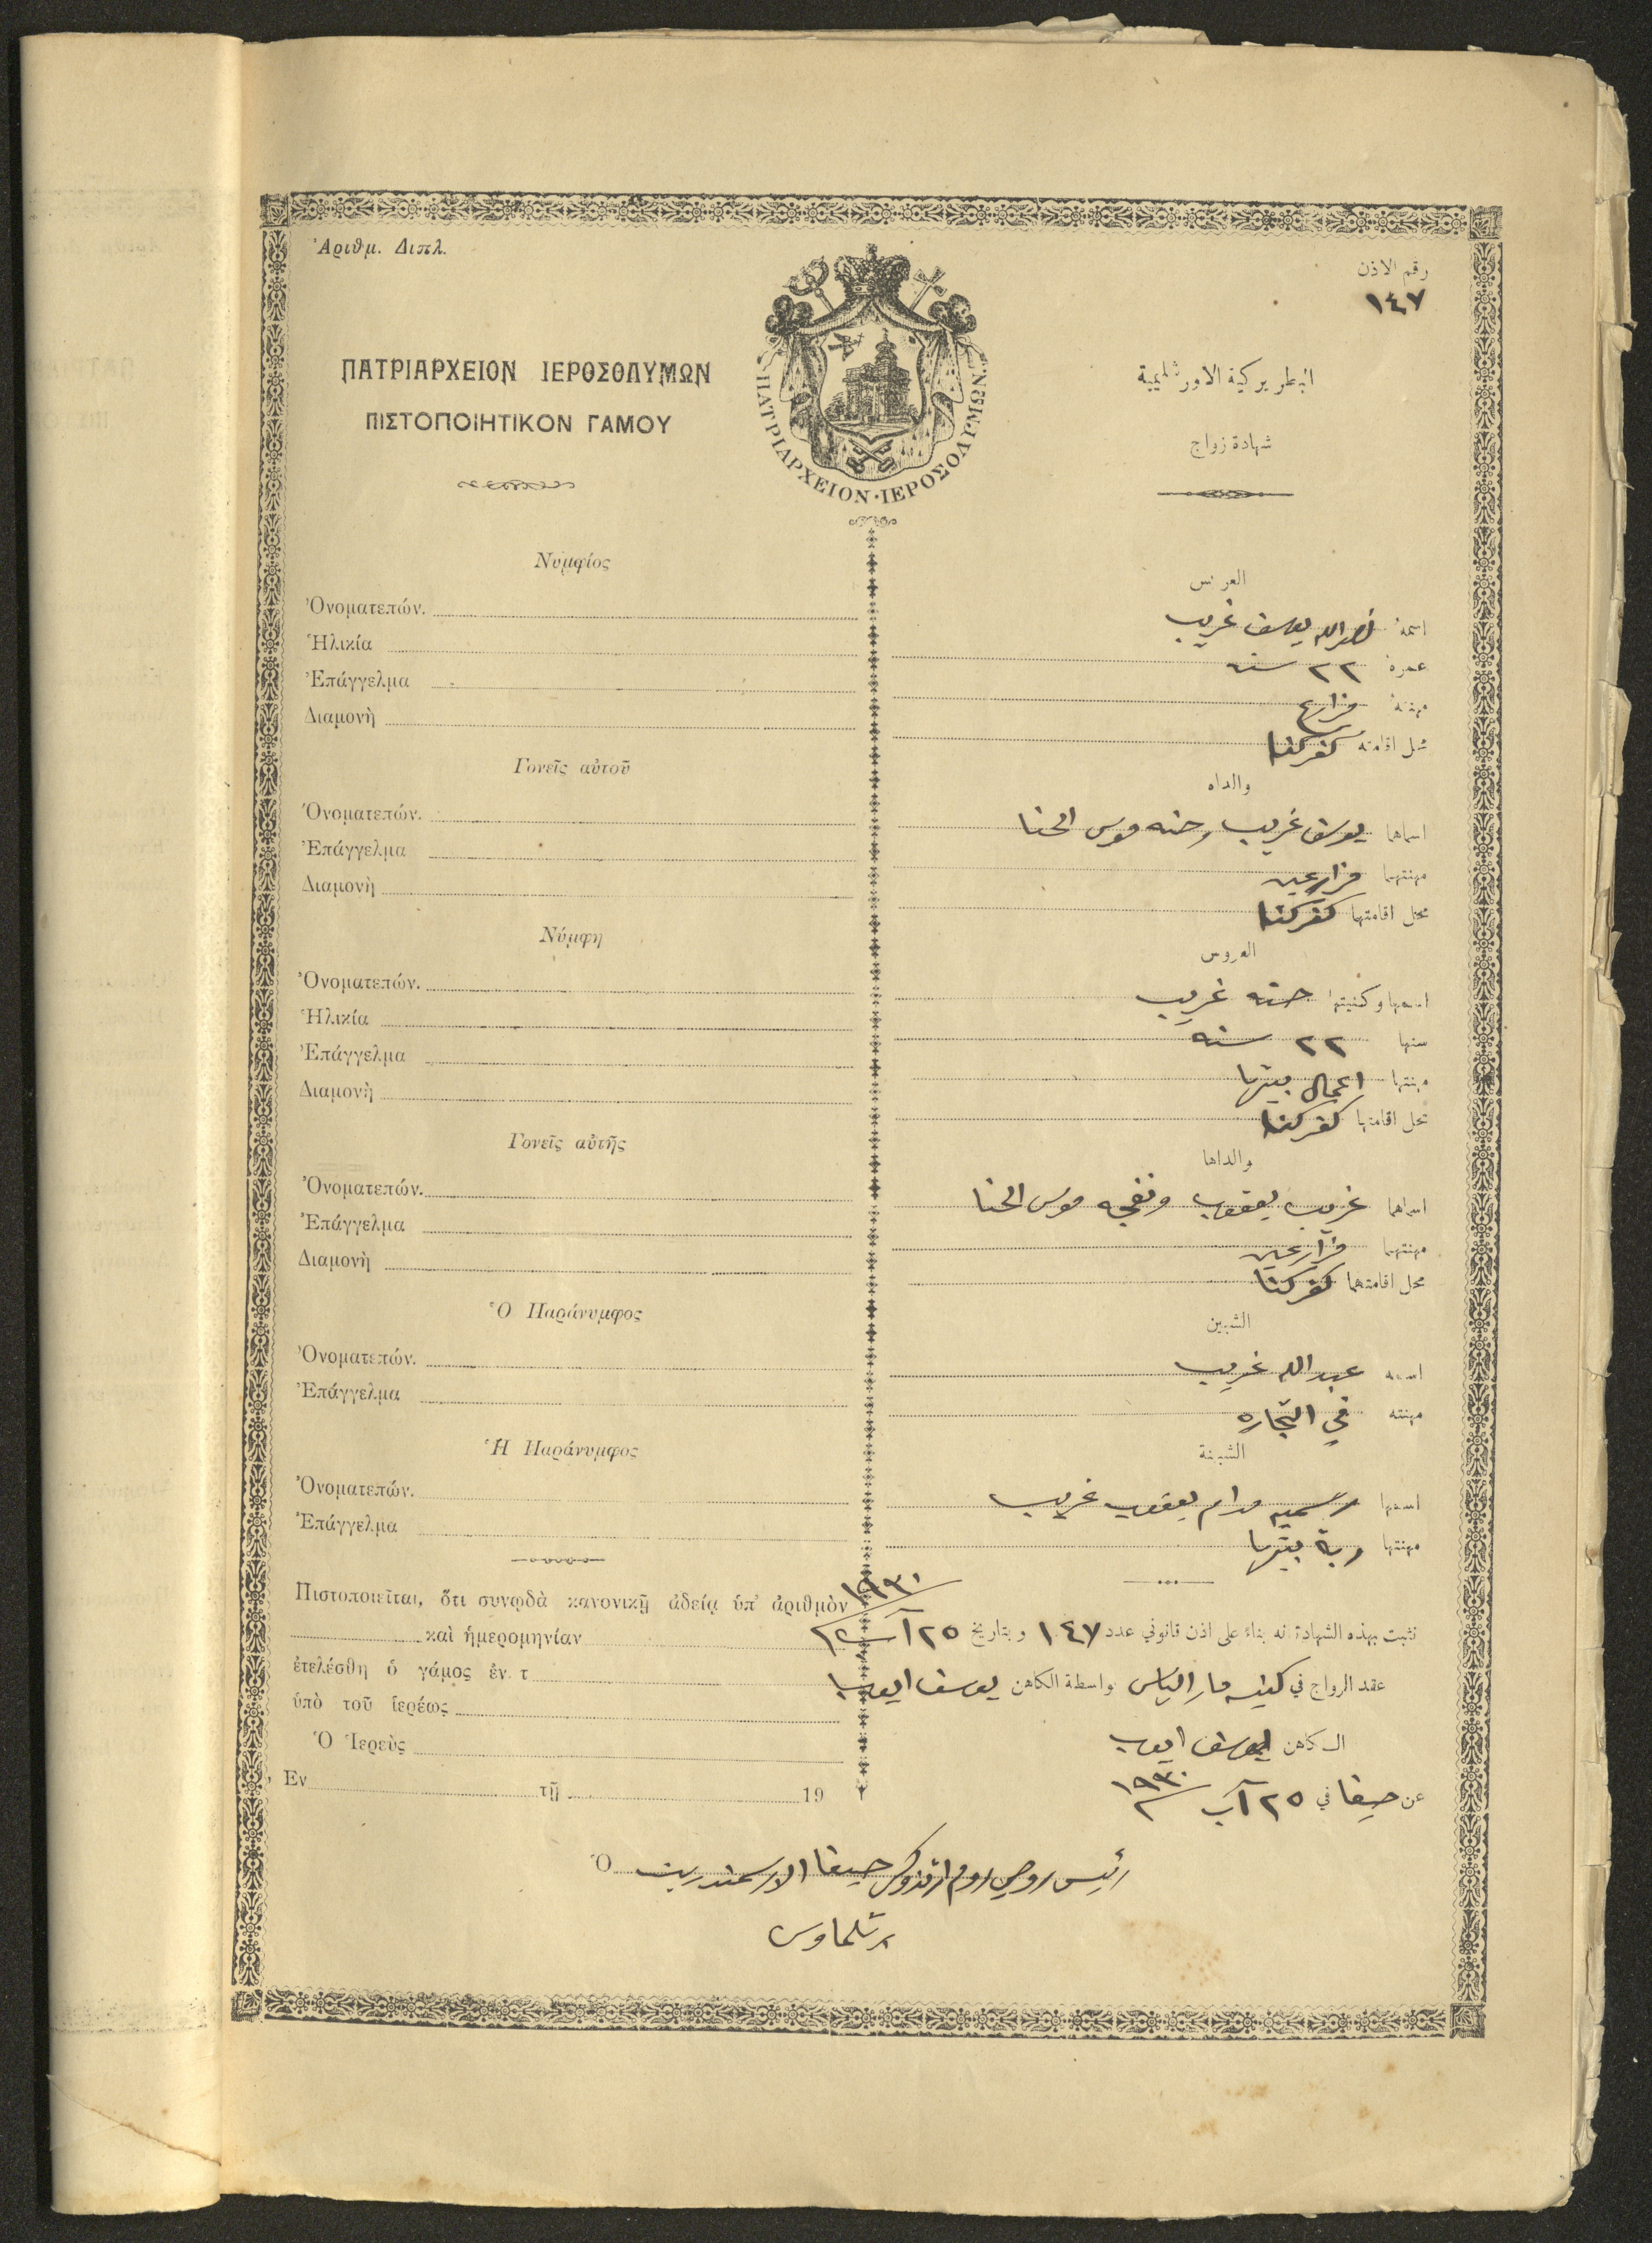 Ἀριθμ. Διπλ.
رقم الاذن
١٤٧
ΠΑΤΡΙΑΡΧΕΙΟΝ ΙΕΡΟΣΟΛΥΜΩΝ
ΠΙΣΤΟΠΟΙΗΤΙΚΟΝ ΓΑΜΟΥ
ΠΑΤΡΙΑΡΧΕΙΟΝ·ΙΕΡΟΣΟΛΥΜΩΝ·
البطريركية الاورشليمية
شهادة زواج
Νυμφίος
Ὀνοματεπών.
Ἡλικία
Ἐπάγγελμα
Διαμονὴ
Γονεῖς αὐτοῦ
Ὀνοματεπών.
Ἐπάγγελμα
Διαμονὴ
Νύμφη
Ὀνοματεπών.
Ἡλικία
Ἐπάγγελμα
Διαμονὴ
Γονεῖς αὐτῆς
Ὀνοματεπών.
Ἐπάγγελμα
Διαμονὴ
Ὁ Παράνυμφος
Ὀνοματεπών.
Ἐπάγγελμα
Ἡ Παράνυμφος
Ὀνοματεπών.
Ἐπάγγελμα
Πιστοποιεῖται, ὅτι συνῳδὰ κανονικῇ ἀδείᾳ ὑπ' ἀριθμὸν
καὶ ἡμερομηνίαν
ἐτελέσθη ὁ γάμος ἐν τ
ὑπὸ τοῦ ἱερέως
Ὁ Ἱερεὺς
Ἐν τῇ 19
العريس
اسمه نصرالله يوسف غريب
عمره ٢٢ سنه
مهنته مزارع
محل اقامته كفركنا
والداه
اسماهما يوسف غريب وحنه موسى الحنا
مهنتهما مزارعين
محل اقامتهما كفركنا
العروس
اسمها وكنيتها حنه غريب
سنها ٢٢ سنه
مهنتها اعمال بيتها
محل اقامتها كفركنا
والداها
اسماهما غريب يعقوب ونفيجه موسى الحنا
مهنتهما مزارعين
محل اقامتهما كفركنا
الشبين
اسمه عبدالله غريب
مهنته في التجاره
الشبينة
اسمها رسميه مدام يعقوب غريب
مهنتها ربة بيتها
نثبت بهذه الشهادة انه بناء على اذن قانوني عدد ١٤٧ وبتاريخ ٢٥ آب ١٩٣٠
عقد الزواج في كنيسه مار الياس بواسطة الكاهن يوسف ايوب
الكاهن يوسف ايوب
عن حيفا في ٢٥ آب ١٩٣٠
Ὁ رئيس روحي روم ارثذوكس حيفا الارشمندريت
برتلماوس